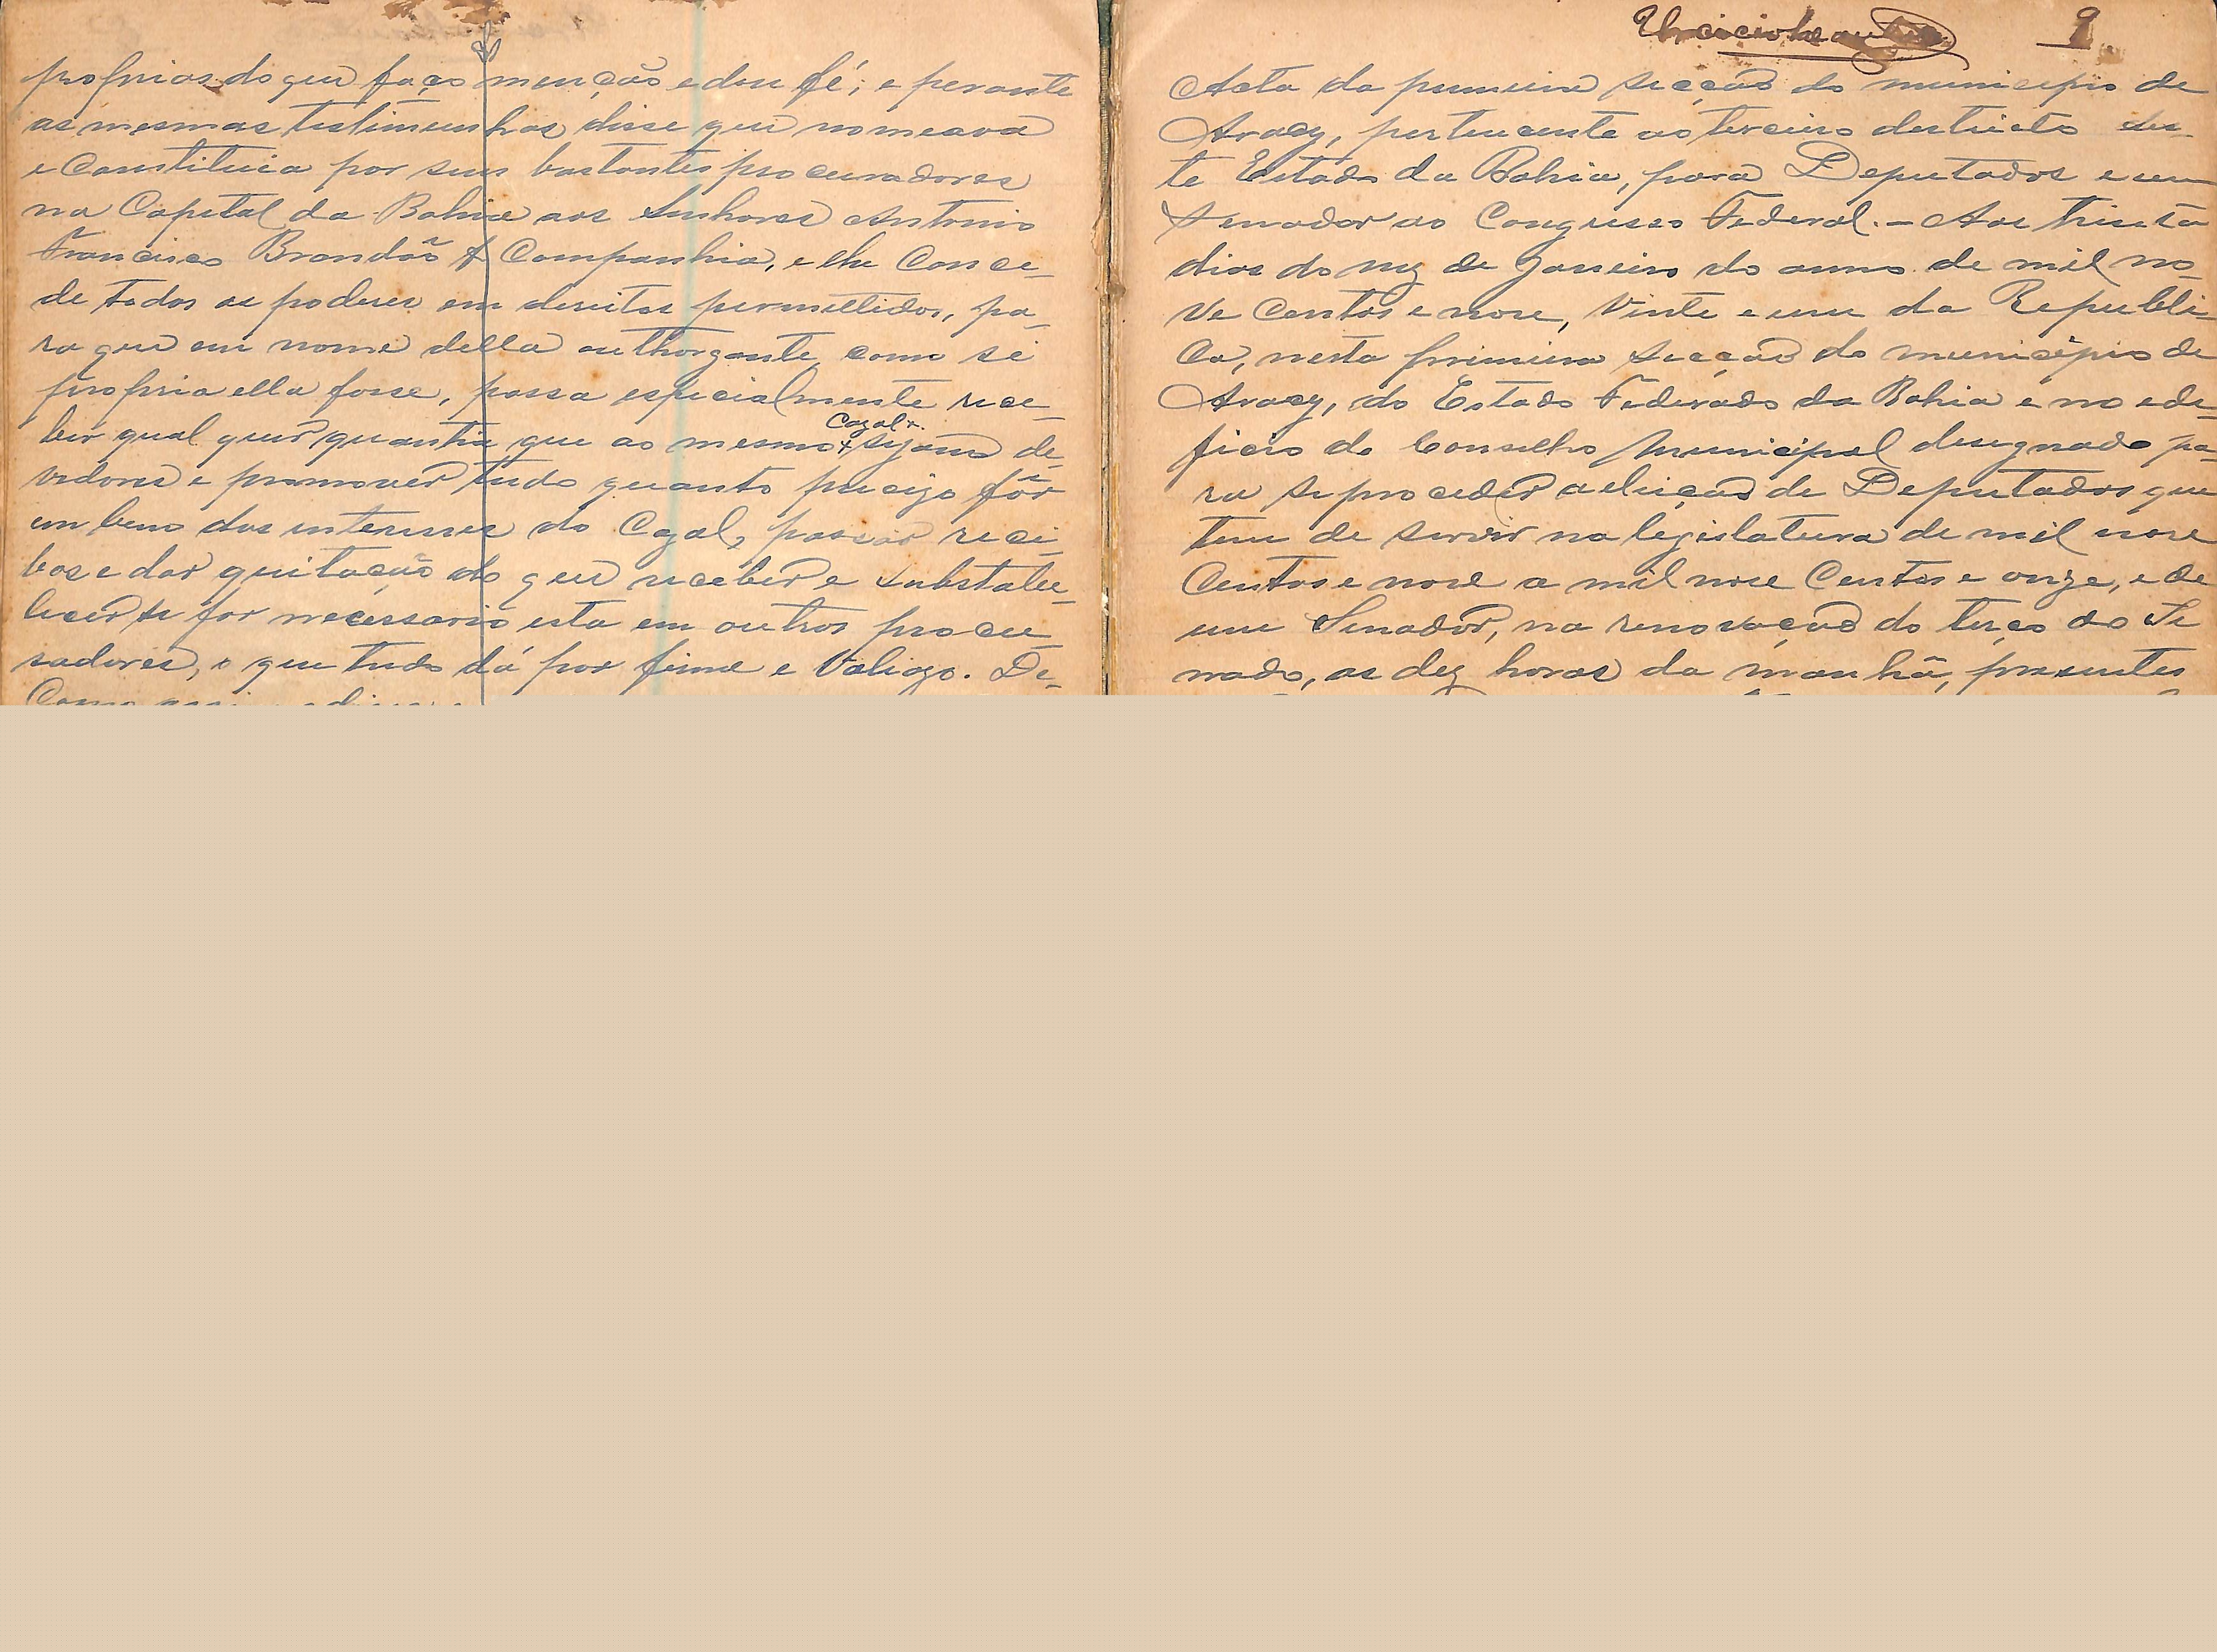 proprias do que faço menção e dou fé; e perante
as mesmas testimunhas disse que nomeava
e Constituia por seus bastantes procuradores
na Capital da Bahia aos Senhores Antonio
Francisco Brandão & Companhia, e lhe Conce-
de todos os poderes em direitos permittidos, pa-
ra que em nome della outhorgante, como si
propria ella fosse, possa especialmente rece-
ber qual quer quantia que ao mesmo + Cazal +. sejam de-
vedores e promover tudo quanto precizo fôr
em bem dos interesses do Cazal, passar reci-
bos e dar quitação do que receber e substabe-
lecer se for necessario esta em outros procu-
radores, o que tudo dá por firme e Valiozo. De-
Como assi
9
Acta da primeira secção do municipio de
Aracy, pertencente ao terceiro destricto des-
te Estado da Bahia, para Deputados e um
Senador ao Congresso Federal. - Aos trinta
dias do mez de Janeiro do anno de mil no-
ve Centos e nove, Vinte e um da Republi-
Ca, nesta primeira secção do municipio de
Aracy, do Estado Federado da Bahia e no ede-
ficio do Conselho Municipal designado pa-
ra se proceder a eleição de Deputados que
tem de servir na legislatura de mil nove
Centos e nove a mil nove Centos e onze, e de
um Senador, na renovação do terço do Se
nado, as dez horas da manhã, presentes